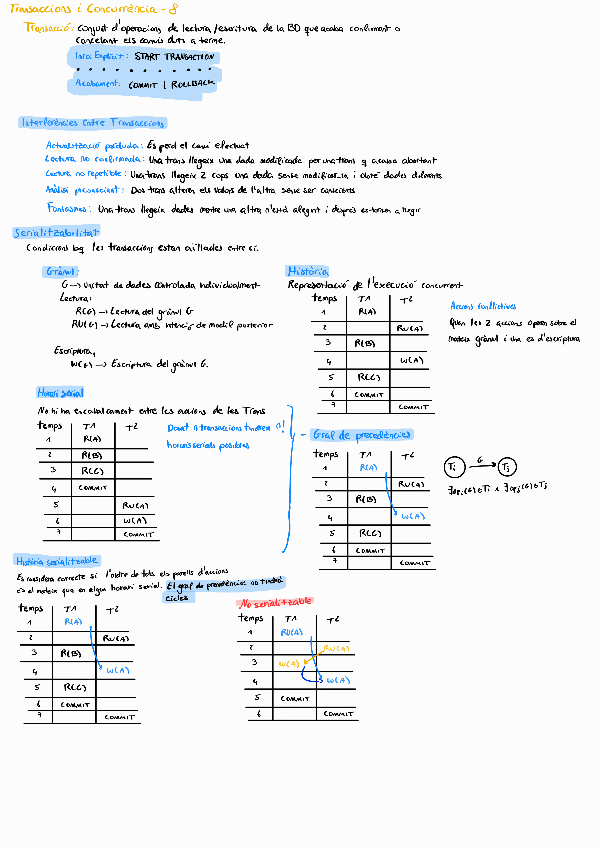 Transaccions i Concurrència - 8
Transacció: Conjunt d'operacions de lectura/escritura de la BD que acaba confirmant o
cancelant els canvis duts a terme.
Inici Explícit: START TRANSACTION
Acabament: COMMIT | ROLLBACK
Interferències entre Transaccions
Actualització perduda: Es perd el canvi efectuat
Lectura no confirmada: Una trans llegeix una dada modificada per una trans q acaba abortant
Lectura no repetible: Una trans llegeix 2 cops una dada sense modificar-la i obté dades diferents
Anàlisi inconsistent: Dos trans alteren els valors de l'altra sense ser conscients
Fantasmes: Una trans llegeix dades mentre una altra n'està afegint i després es tornen a llegir
Serialitzabilitat
Condicions log les transaccions estan aïllades entre si.
Grànul:
G → Unitat de dades controlada individualment
Lectura:
R(G) → Lectura del grànul G
RU(G) → Lectura amb intenció de modif posterior
Escriptura,
W(G) → Escriptura del grànul G.
Història
Representació de l'execució concurrent
temps T1 T2
1 R(A)
2 RU(A)
3 R(B)
4 W(A)
5 R(C)
6 COMMIT
7 COMMIT
Accions conflictives
Quan les 2 accions operen sobre el
mateix grànul i una es d'escriptura
Horari serial
No hi ha encavalcament entre les accions de les Trans
temps T1 T2
1 R(A)
2 R(B)
3 R(C)
4 COMMIT
5 RU(A)
6 W(A)
7 COMMIT
Donat n transaccions tindrem n!
horaris serials possibles
- Graf de precedències
temps T1 T2
1 R(A)
2 RU(A)
3 R(B)
4 W(A)
5 R(C)
6 COMMIT
7 COMMIT
Ti G Tj
∃opi(G)∈Ti ∧ ∃opj(G)∈Tj
Història serialitzable
Es considera correcte si l'ordre de tots els parells d'accions
és el mateix que en algun horari serial. El graf de precedències no tindrà
cicles
temps T1 T2
1 R(A)
2 RU(A)
3 R(B)
4 W(A)
5 R(C)
6 COMMIT
7 COMMIT
No serialitzable
temps T1 T2
1 RU(A)
2 RU(A)
3 W(A)
4 W(A)
5 COMMIT
6 COMMIT